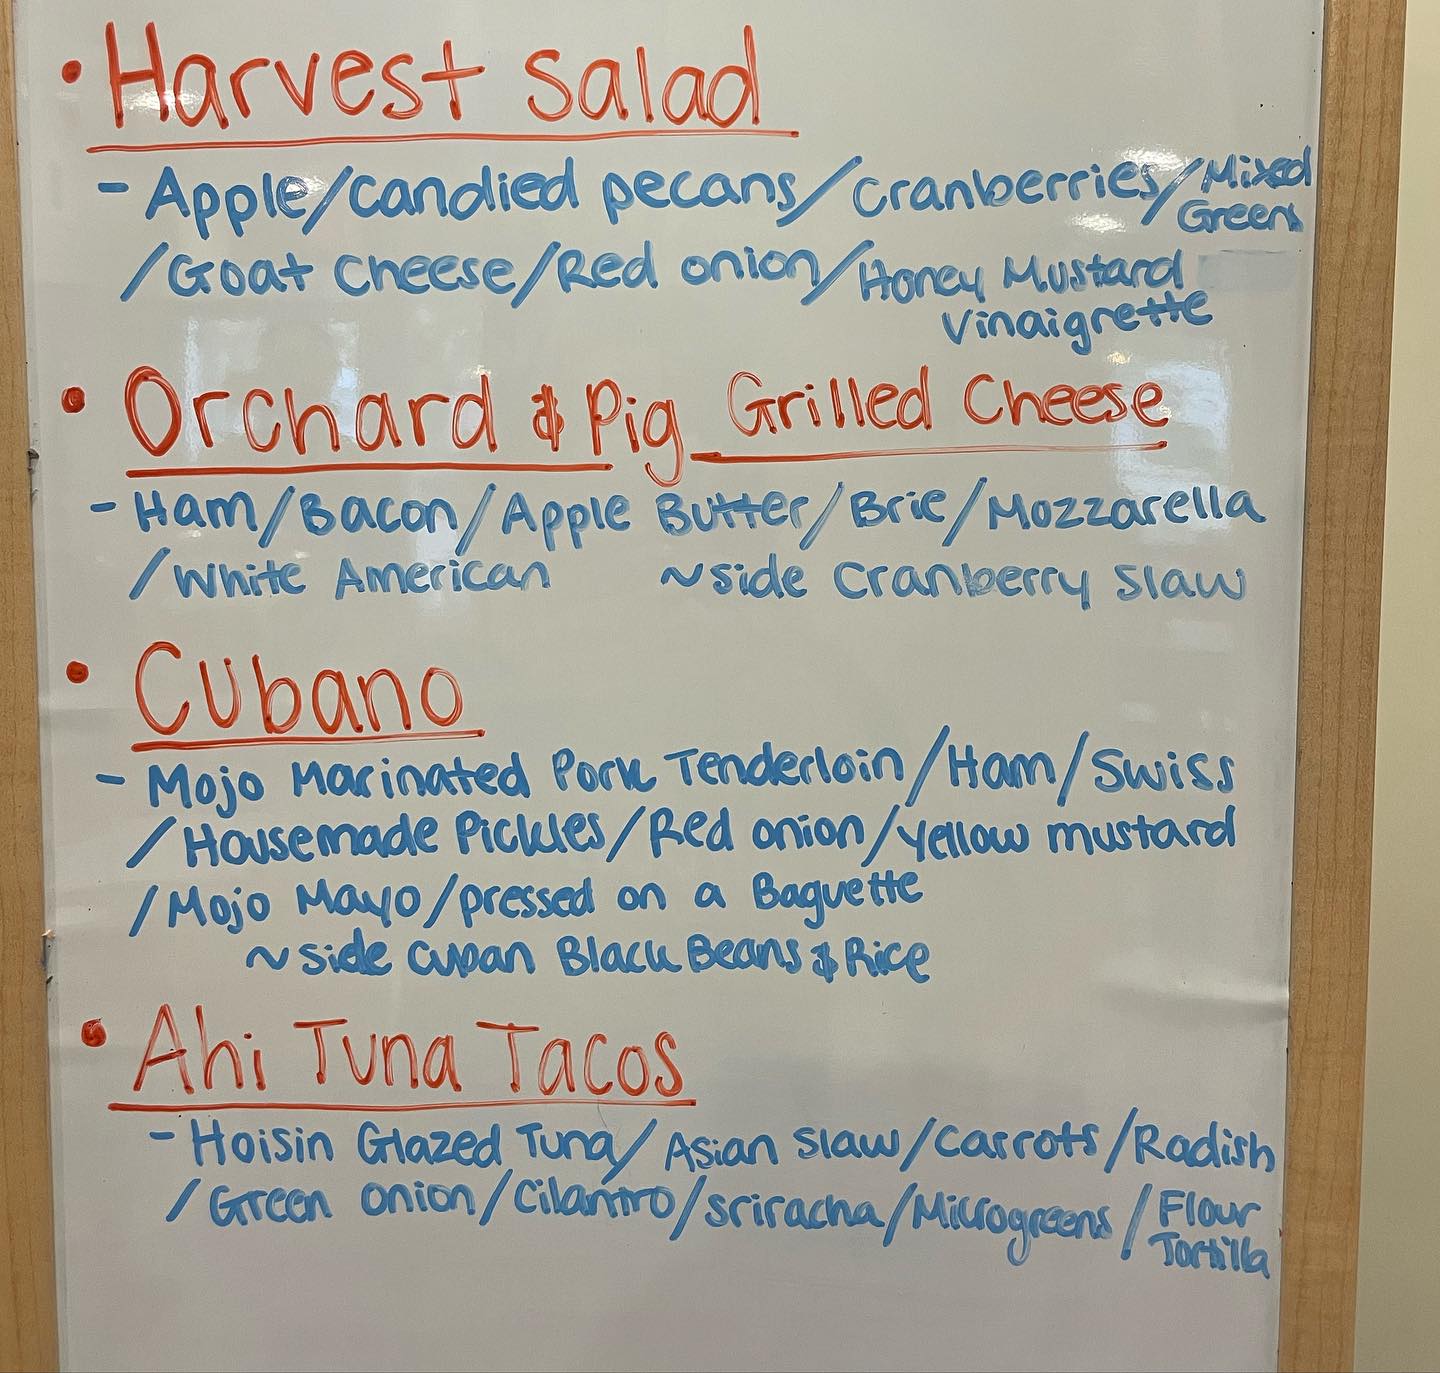 • Harvest Salad
- Apple/candied pecans/cranberries/Mixed Greens
/Goat Cheese/Red onion/Honey Mustard Vinaigrette
• Orchard & Pig Grilled Cheese
- Ham/Bacon/Apple Butter/Brie/Mozzarella
/White American ~side Cranberry Slaw
• Cubano
- Mojo Marinated Pork Tenderloin/Ham/Swiss
/Housemade Pickles/Red onion/yellow mustard
/Mojo Mayo/pressed on a Baguette
~side Cuban Black Beans & Rice
• Ahi Tuna Tacos
- Hoisin Glazed Tuna/Asian Slaw/Carrots/Radish
/Green onion/Cilantro/sriracha/Microgreens/Flour Tortilla